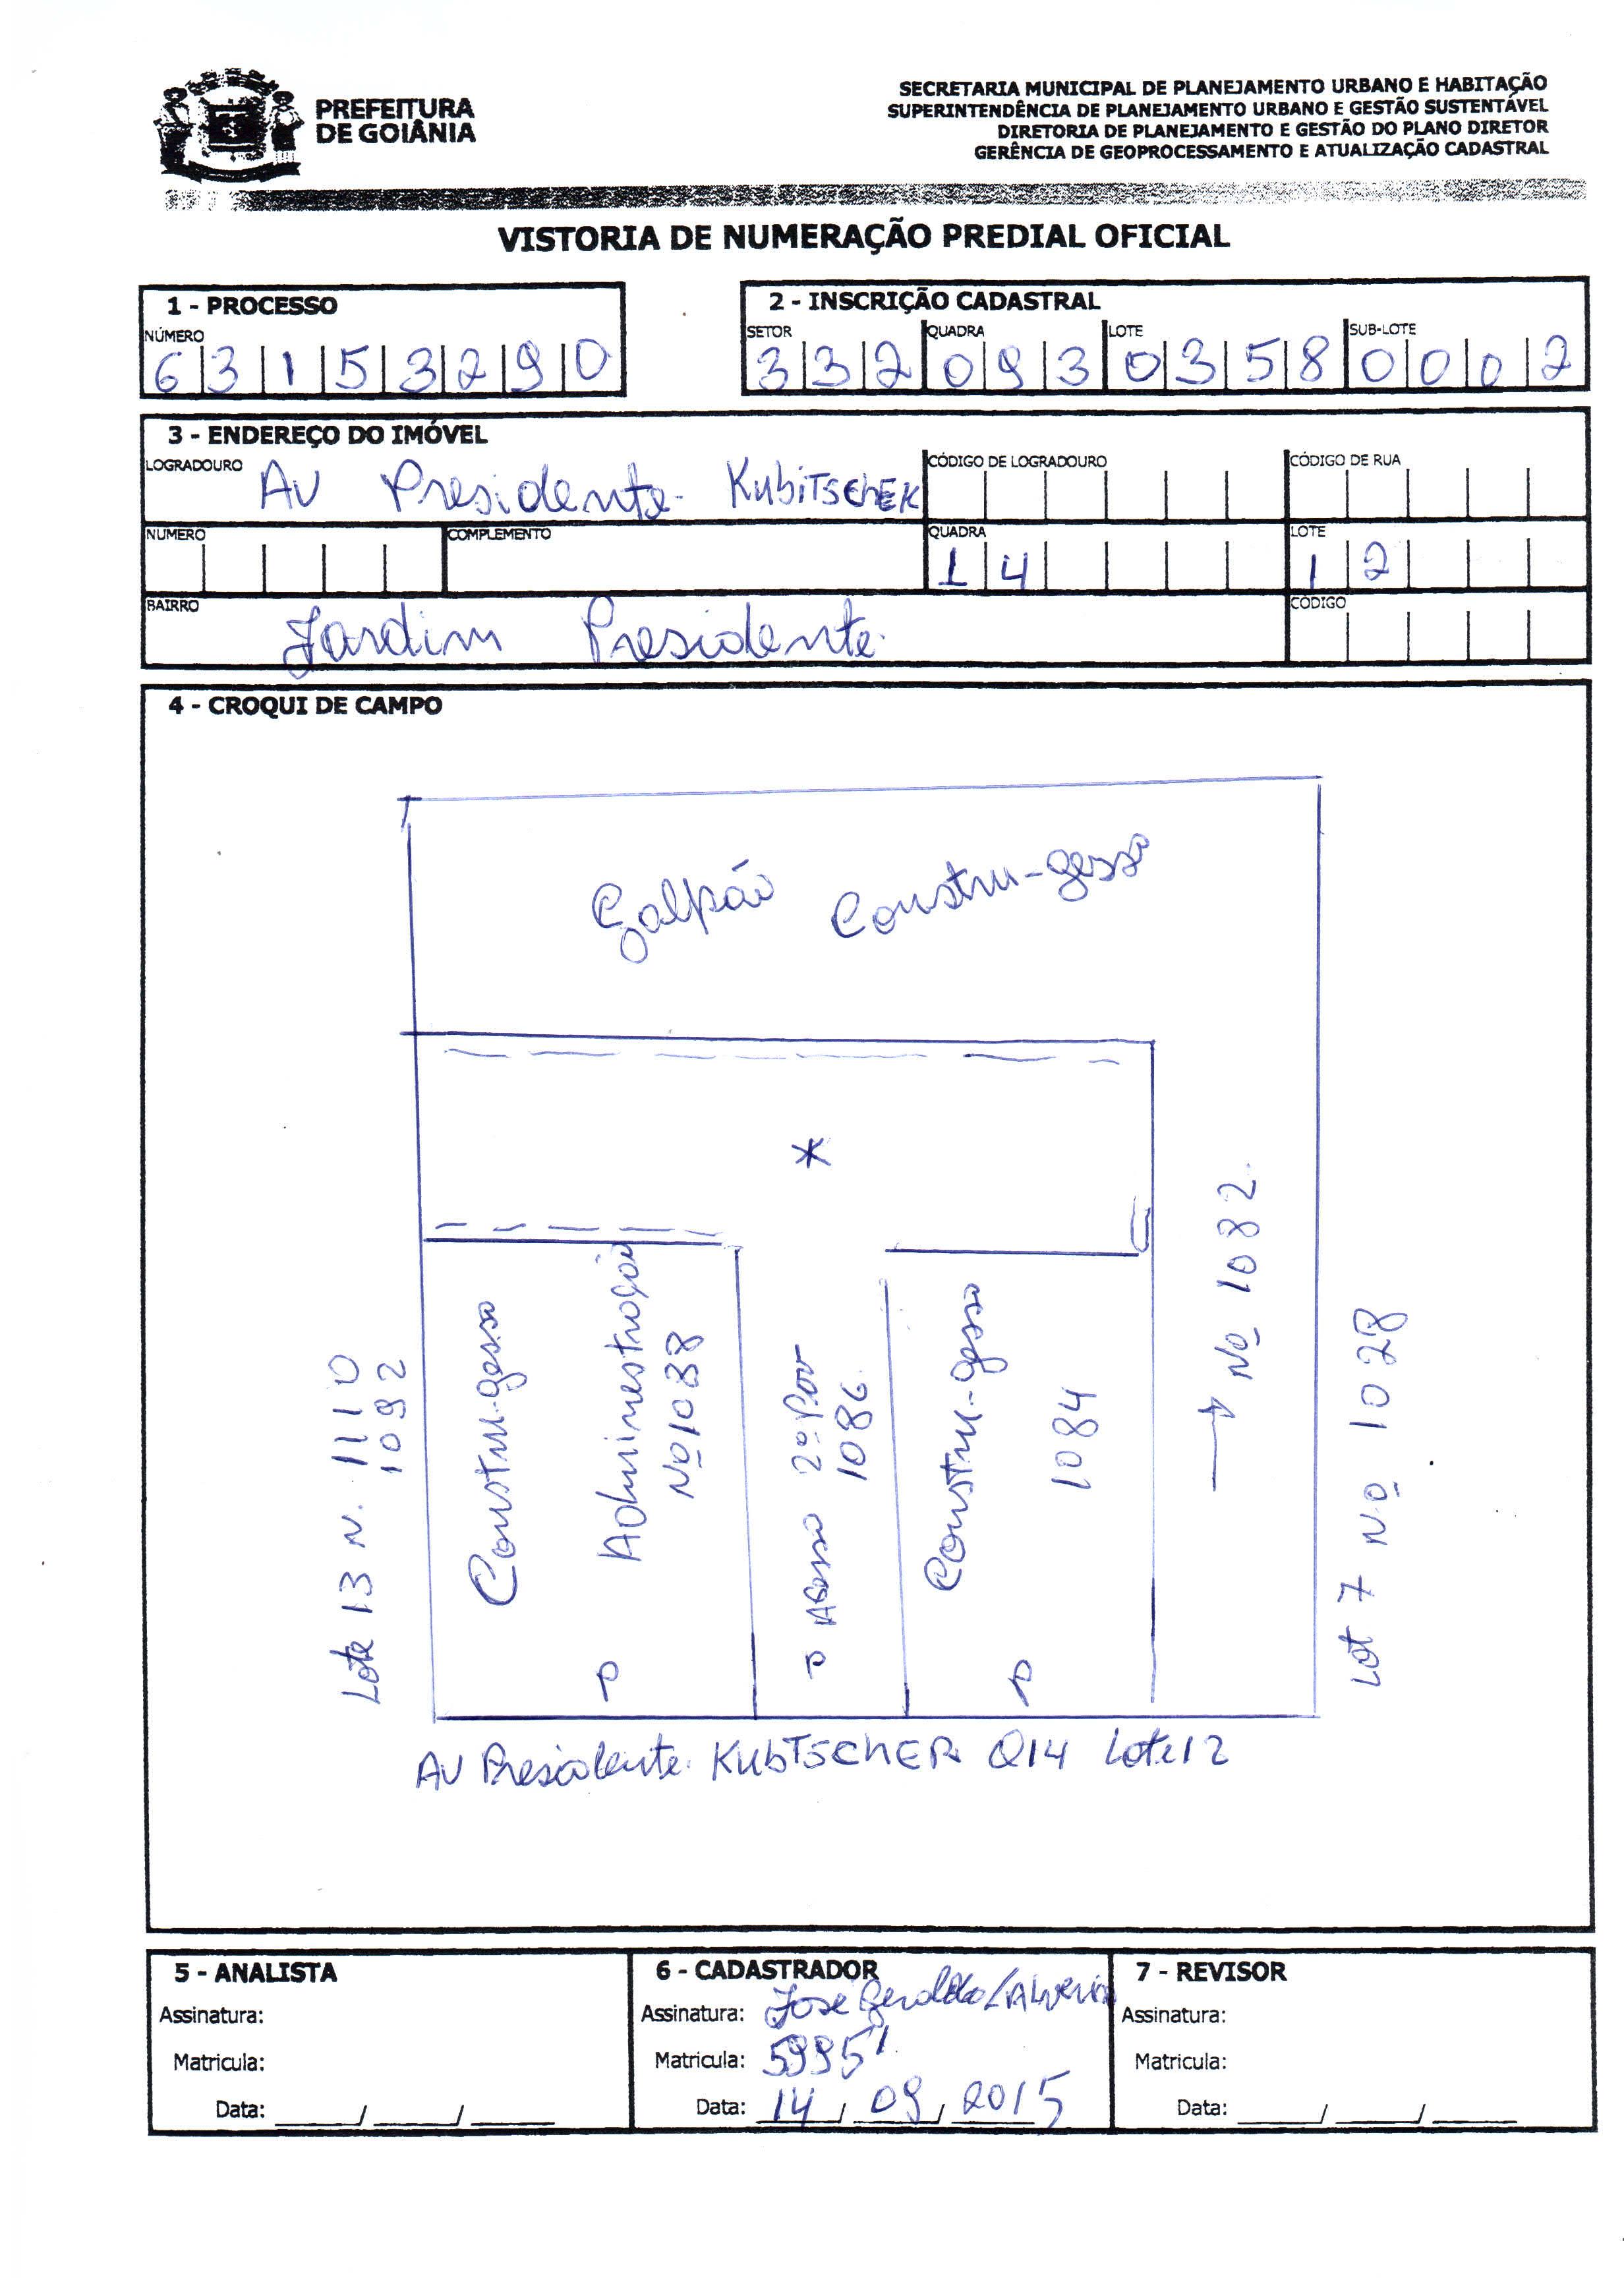 PREFEITURA
DE GOIÂNIA
SECRETARIA MUNICIPAL DE PLANEJAMENTO URBANO E HABITAÇÃO
SUPERINTENDÊNCIA DE PLANEJAMENTO URBANO E GESTÃO SUSTENTÁVEL
DIRETORIA DE PLANEJAMENTO E GESTÃO DO PLANO DIRETOR
GERÊNCIA DE GEOPROCESSAMENTO E ATUALIZAÇÃO CADASTRAL
VISTORIA DE NUMERAÇÃO PREDIAL OFICIAL
1 - PROCESSO
NÚMERO
6 3 1 5 3 2 9 0
2 - INSCRIÇÃO CADASTRAL
SETOR QUADRA LOTE SUB-LOTE
3 3 2 0 9 3 0 3 5 8 0 0 0 2
3 - ENDEREÇO DO IMÓVEL
LOGRADOURO Av Presidente Kubitschek CÓDIGO DE LOGRADOURO CÓDIGO DE RUA
NÚMERO COMPLEMENTO QUADRA 1 4 LOTE 1 2
BAIRRO Jardim Presidente CÓDIGO
4 - CROQUI DE CAMPO
Galpão Constru-gesso
*
Lote 13 N. 1110
1092
Constru-gesso
Administração
Nº 1088
Acesso 2º Pav
1086
Constru-gesso
1084
Nº 1082
Lot 7 Nº 1028
Av Presidente KUBTSCHER Q14 Lote 12
5 - ANALISTA
Assinatura:
Matricula:
Data: / /
6 - CADASTRADOR
Assinatura: José Geraldo
Matricula: 59951
Data: 14 / 09 / 2015
7 - REVISOR
Assinatura:
Matricula:
Data: / /